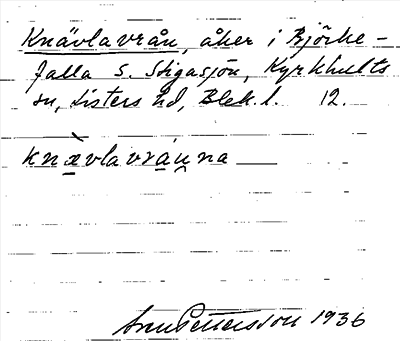 Knävlavrån, åker i Björke-
falla s. Stigasjön, Kyrkhults
sn, Listers hd, Blek. l. 12.
knæ̀vlavráu̯na
Sven Pettersson 1936